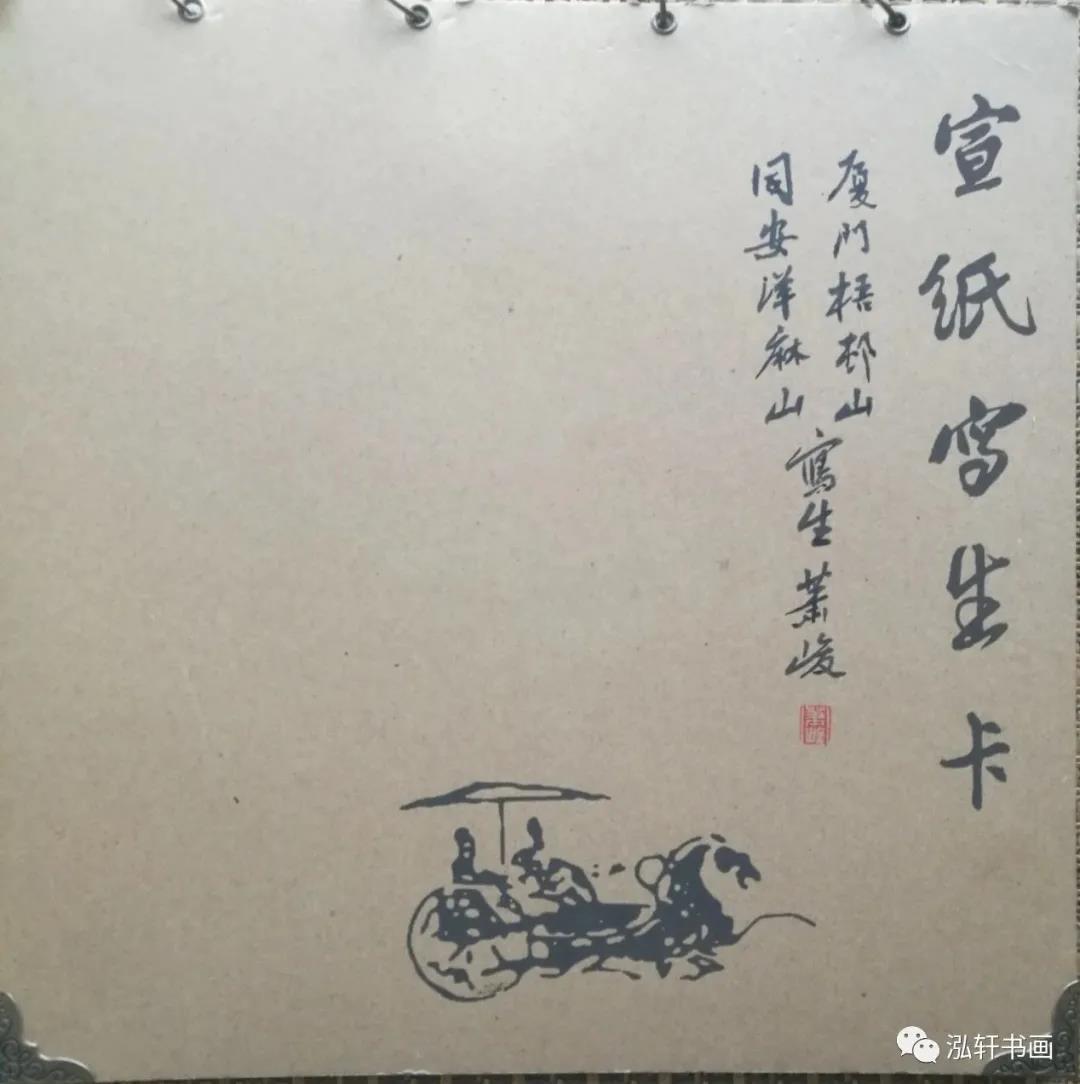 宣纸写生卡
厦门梧邨山
同安洋麻山
寫生 萧峻
泓轩书画